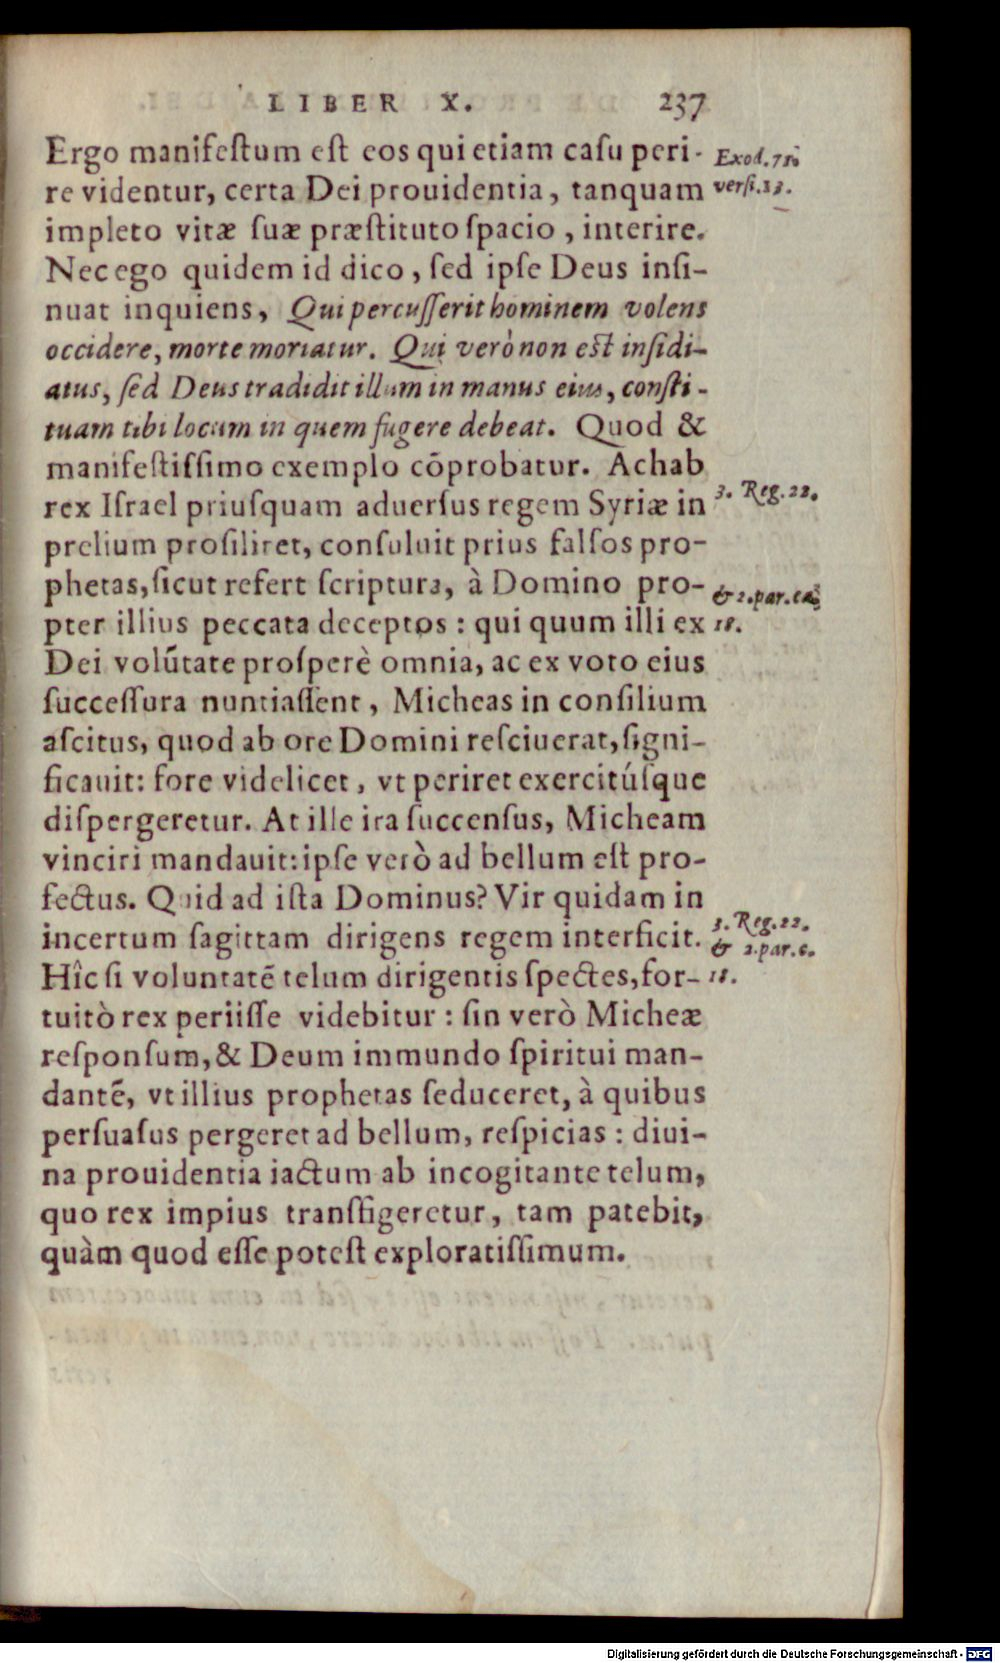 LIBER X. 237
Ergo manifeſtum eſt eos qui etiam caſu peri-
re videntur, certa Dei prouidentia, tanquam
impleto vitæ ſuæ præſtituto ſpacio, interire.
Nec ego quidem id dico, ſed ipſe Deus inſi-
nuat inquiens, Qui percuſſerit hominem volens
occidere, morte moriatur. Qui verò non eſt inſidi-
atus, ſed Deus tradidit illum in manus eius, conſti-
tuam tibi locum in quem fugere debeat. Quod &
manifeſtiſſimo exemplo cōprobatur. Achab
rex Iſrael priuſquam aduerſus regem Syriæ in
prelium proſiliret, conſuluit prius falſos pro-
phetas, ſicut refert ſcriptura, à Domino pro-
pter illius peccata deceptos: qui quum illi ex
Dei volūtate proſperè omnia, ac ex voto eius
ſucceſſura nuntiaſſent, Micheas in conſilium
aſcitus, quod ab ore Domini reſciuerat, ſigni-
ficauit: fore videlicet, vt periret exercitúſque
diſpergeretur. At ille ira ſuccenſus, Micheam
vinciri mandauit: ipſe verò ad bellum eſt pro-
fectus. Quid ad iſta Dominus? Vir quidam in
incertum ſagittam dirigens regem interficit.
Hîc ſi voluntatē telum dirigentis ſpectes, for-
tuitò rex periiſſe videbitur: ſin verò Micheæ
reſponſum, & Deum immundo ſpiritui man-
dantē, vt illius prophetas ſeduceret, à quibus
perſuaſus pergeret ad bellum, reſpicias: diui-
na prouidentia iactum ab incogitante telum,
quo rex impius transfigeretur, tam patebit,
quàm quod eſſe poteſt exploratiſſimum.
Exod.
verſi. 13.
3. Reg. 22.
& 2. par. ca.
18.
3. Reg. 22.
& 2. par. c.
18.
Digitalisierung gefördert durch die Deutsche Forschungsgemeinschaft - DFG